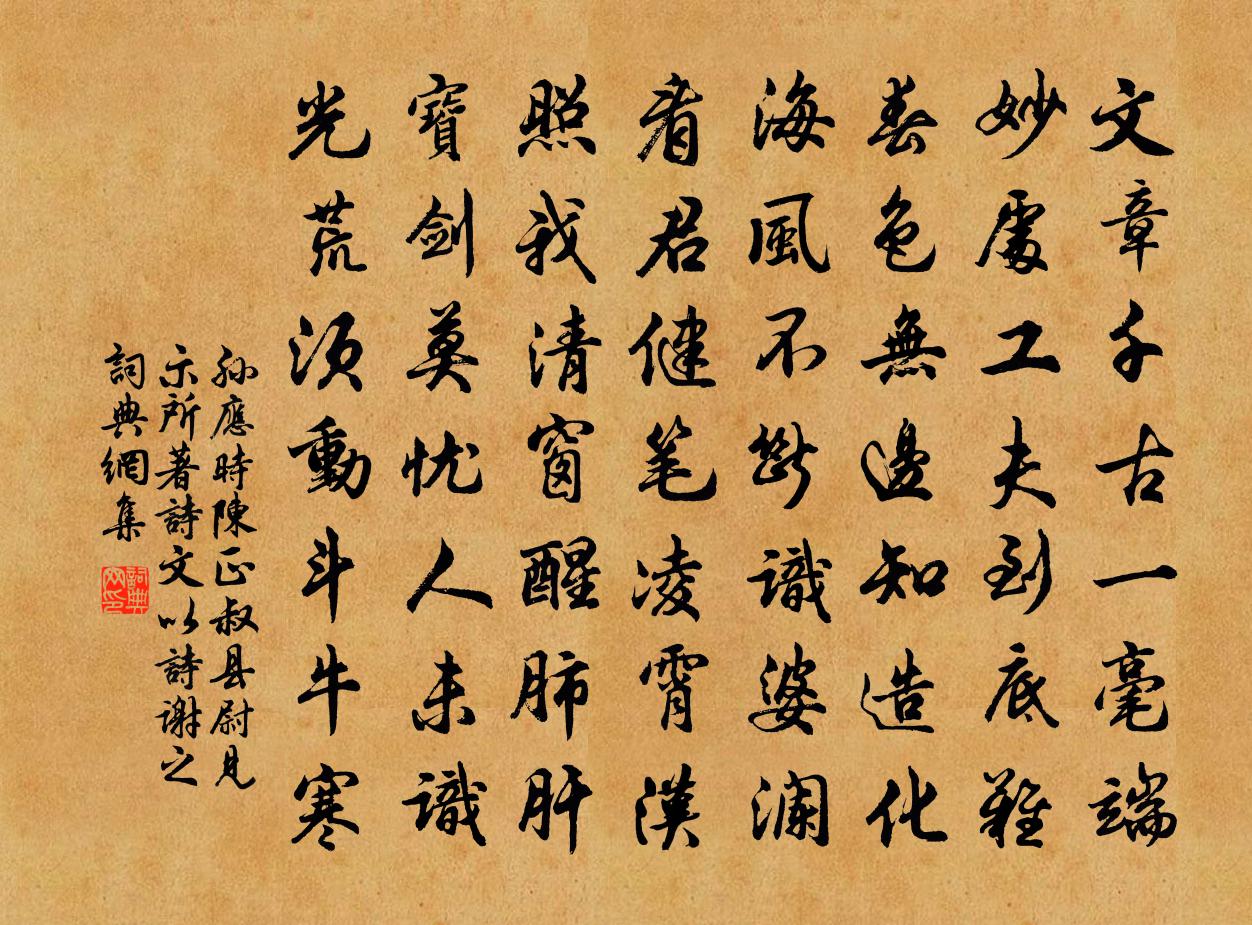 文章千古一毫端
妙處工夫到底難
春色無邊知造化
海風不斷識婆瀾
看君健笔凌霄漢
照我清窗醒肺肝
寶劍莫忧人未識
光荒須動斗牛寒
孙應時陳正叔县尉見
示所著詩文以詩谢之
詞典網集
詞典
网印